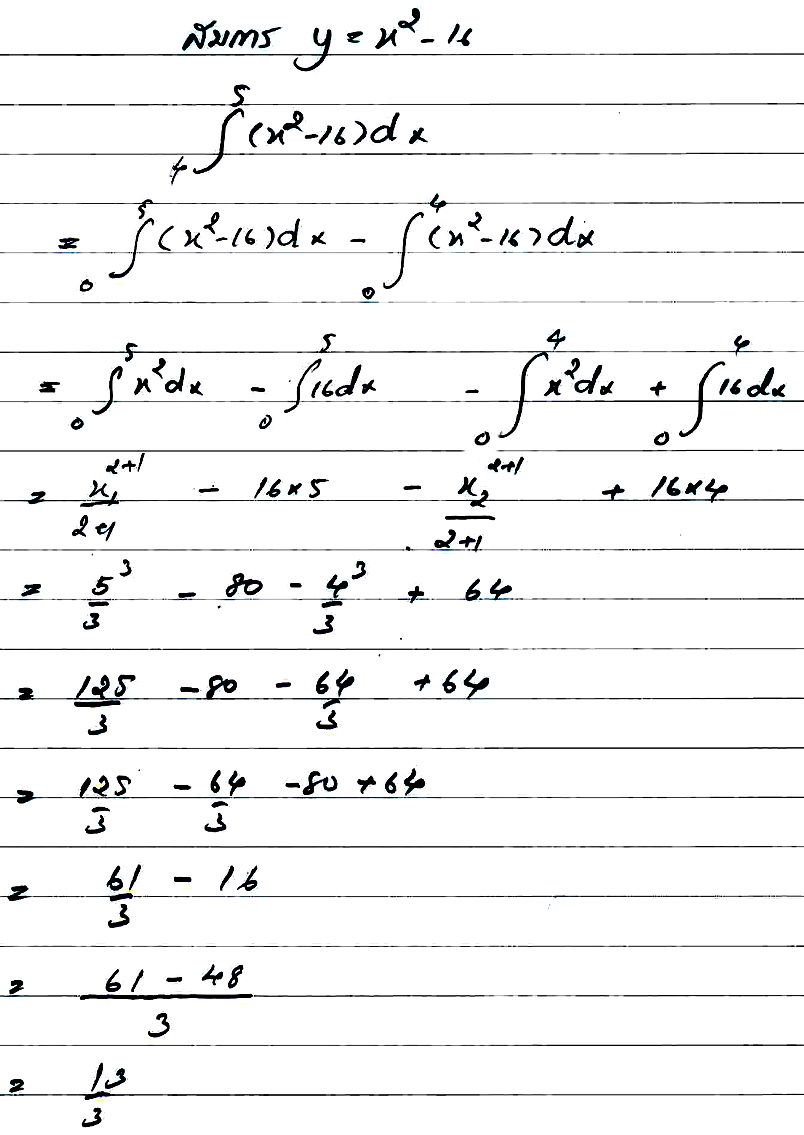 สมการ y = x² - 16
₄∫⁵ (x² - 16) dx
= ₀∫⁵ (x² - 16) dx - ₀∫⁴ (x² - 16) dx
= ₀∫⁵ x² dx - ₀∫⁵ 16 dx - ₀∫⁴ x² dx + ₀∫⁴ 16 dx
= x₁²⁺¹/(2+1) - 16×5 - x₂²⁺¹/(2+1) + 16×4
= 5³/3 - 80 - 4³/3 + 64
= 125/3 - 80 - 64/3 + 64
= 125/3 - 64/3 - 80 + 64
= 61/3 - 16
= (61 - 48)/3
= 13/3